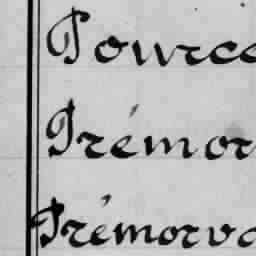 Pource
Prémor
Prémorva